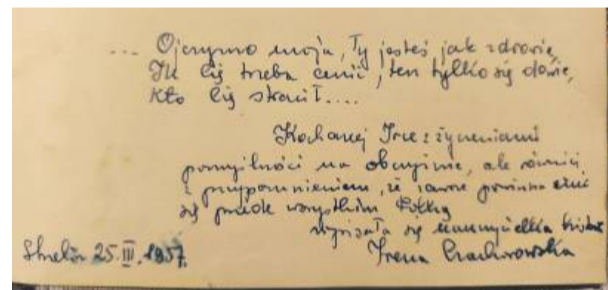 ... Ojczyzno moja, Ty jesteś jak zdrowie,
Ile Cię trzeba cenić, ten tylko się dowie,
Kto Cię stracił....
Kochanej Irce z życzeniami
pomyślności na obczyźnie, ale również
z przypomnieniem, że zawsze powinna czuć
się przede wszystkim Polką
wpisała się nauczycielka
Strzelin 25.III.1957. Irena